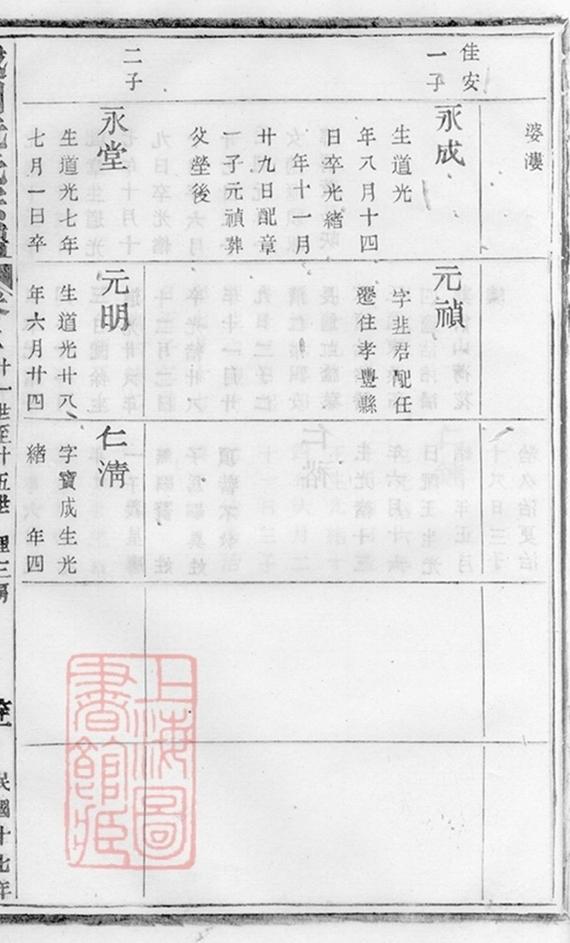 婆㴖
佳安
一子
永成
生道光
年八月十四
日卒光緒
年十一月
廿九日配章
一子元禎葬
父塋後
二子
永堂
生道光七年
七月一日卒
元禎
字韭君配任
遷住孝豐縣
元明
生道光廿八
年六月廿四
仁淸
字寶成生光
緒 年四
廿一世至廿五世 理三房
民國十七年
上海圖
書館藏